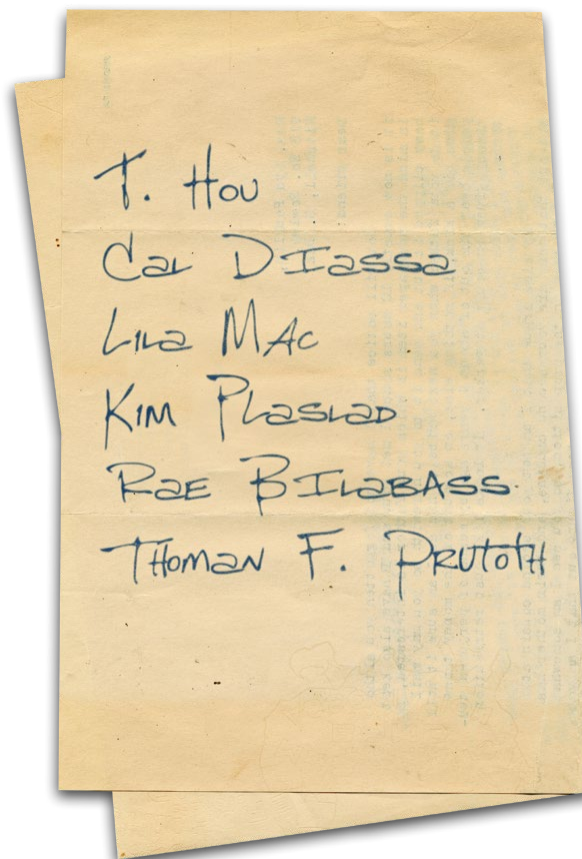 T. Hou
Cal DIassa
Lila Mac
Kim Plaslad
Rae BIlabass
Thoman F. Prutoth